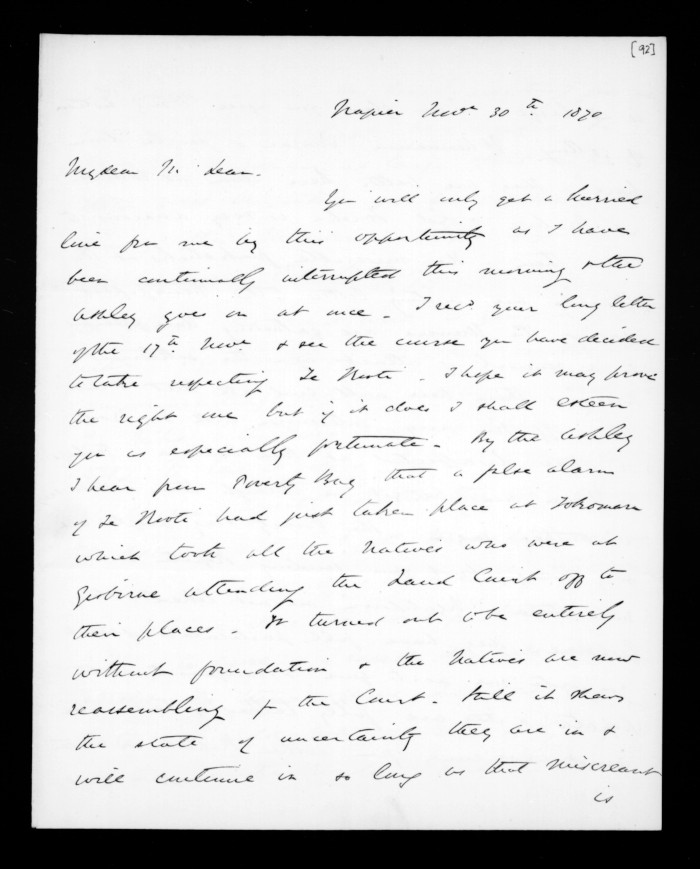 [92]
Napier Novr 30th 1870
My dear McLean.
You will only get a hurried
line from me by this opportunity as I have
been continually interrupted this morning & the
Ashley goes on at once. I recd your long letter
of the 17th Novr & see the course you have decided
to take respecting Te Kooti. I hope it may prove
the right one but if it does I shall esteem
you as especially fortunate. By the Ashley
I hear from Poverty Bay that a false alarm
of Te Kooti had just taken place at Tokomaru
which took all the Natives who were at
Gisborne attending the Land Court off to
their places. It turned out to be entirely
without foundation & the Natives are now
reassembling for the Court. Still it shows
the state of uncertainty they are in &
will continue in so long as that miscreant
is